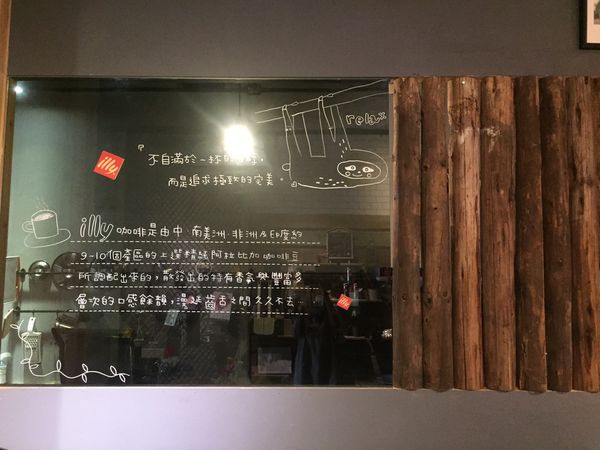 relax
『不自滿於一杯的美好,
而是追求極致的完美。
illy
illy 咖啡是由中.南美洲.非洲及印度約
9-10個產區的上選精緻阿拉比加咖啡豆
所調配出來的,散發出的特有香氣與豐富多
層次的口感餘韻,漫延齒舌之間久久不去...
illy